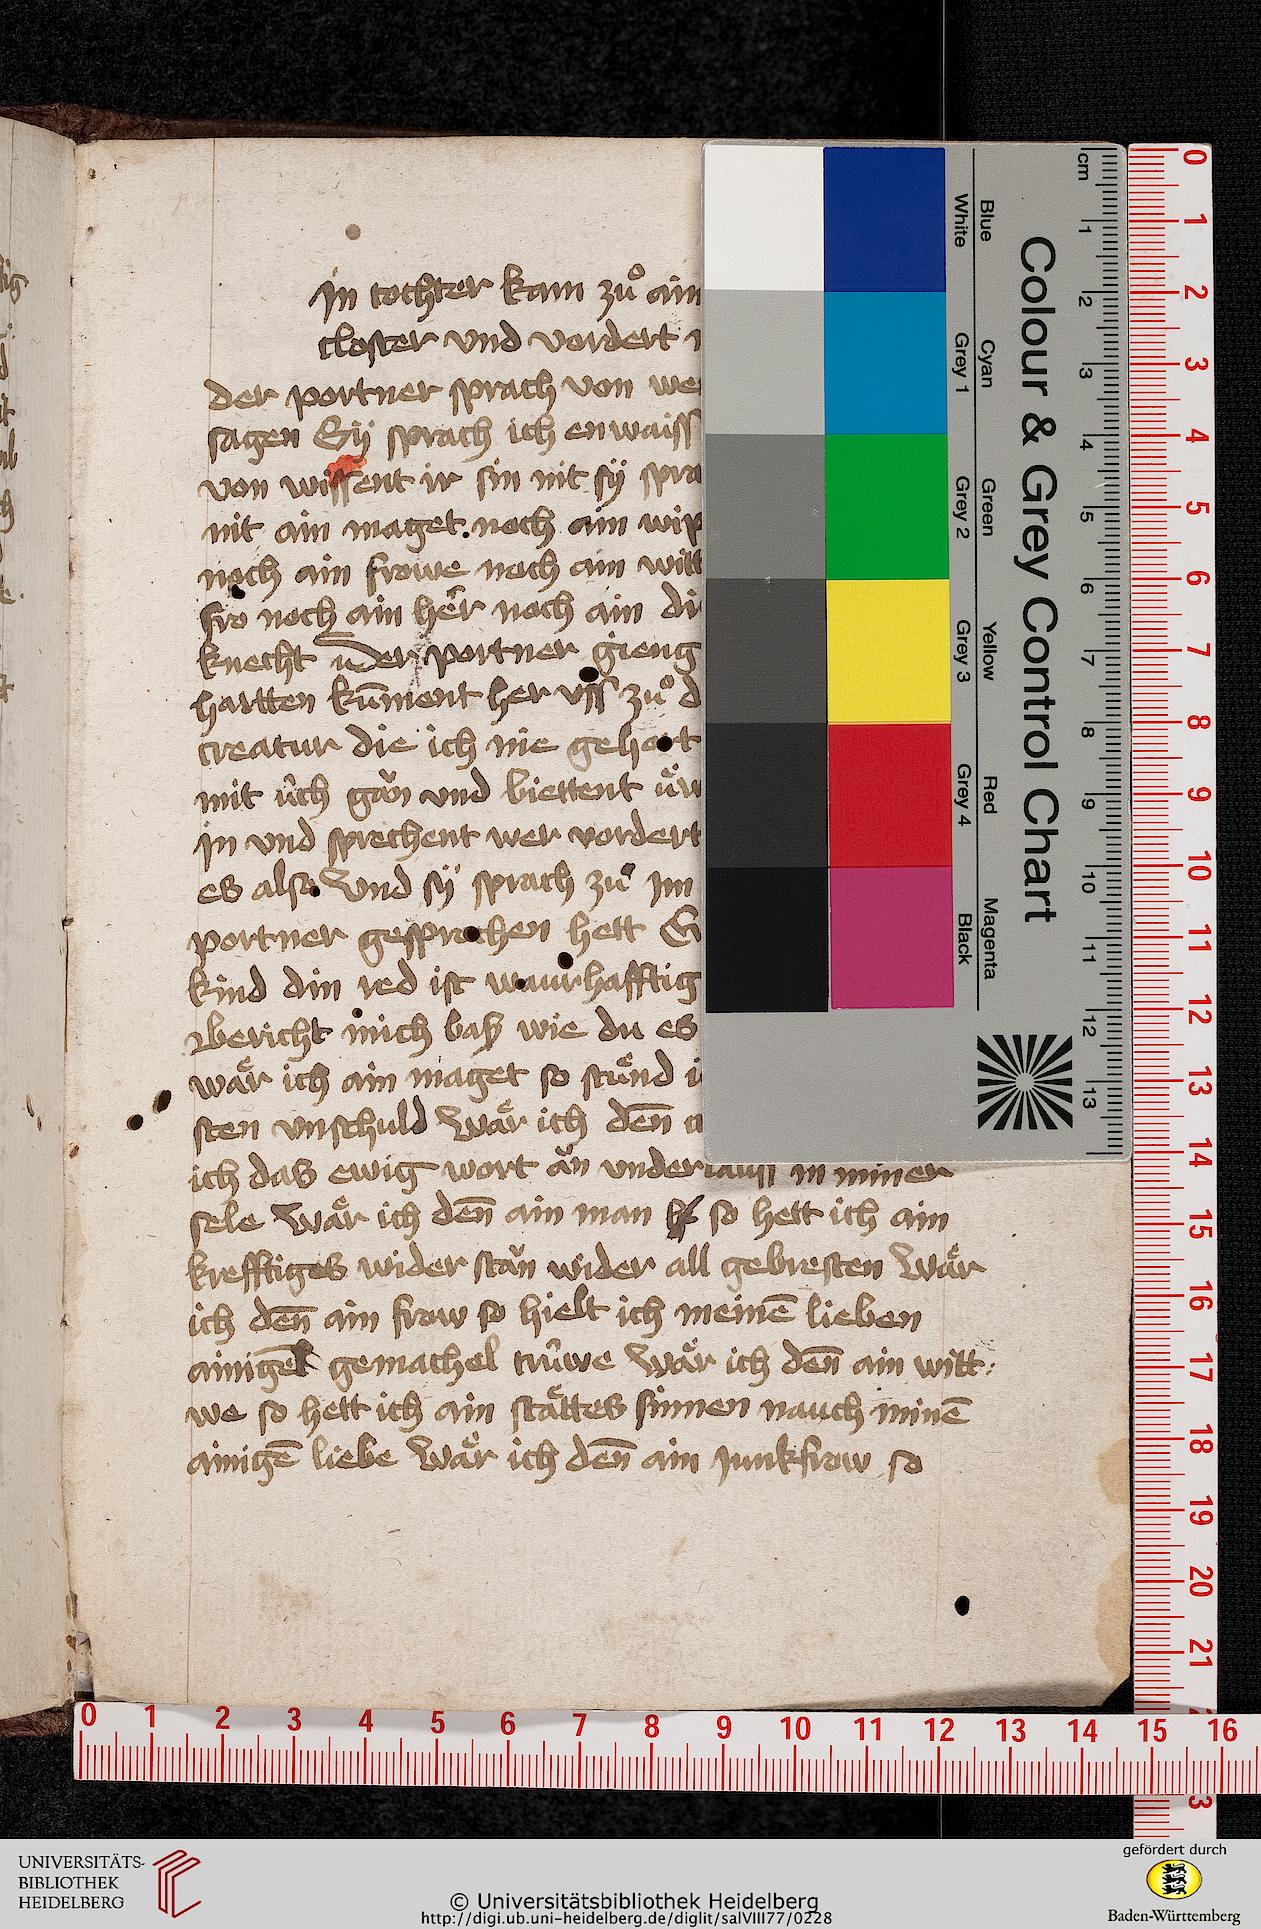 in tochter kam zuͦ ain
closter und vordert
der portner sprach von
sagen Sÿ sprach ich enwaiss
von wissent ir sin nit sÿ
nit ain maget noch ain wip
noch ain frowe noch ain
fro noch ain her noch ain
knecht der portner gieng
hartten kūment her uss zuͦ
creatur die ich nie gehort
mit üch gān und biettent
in und sprechent wer vordert
es also Und sÿ sprach zuͦ im
portner gesprochen hett
kind din red ist waurhafftig
Bericht mich bas wie du es
wär ich ain maget so stünd
sten unschuld Wär ich deñ
ich das ewig wort än underlauss in miner
sele Wär ich deñ ain man so hett ich ain
krefftiges wider stān wider all gebresten Wär
ich deñ ain frow so hielt ich meinē lieben
gemachel trüwe Wär ich deñ ain witt:
we so hett ich ain stättes sinnen nauch minē
ainigē liebe Wär ich deñ ain junkfrow so
Blue
Cyan
Green
Yellow
Red
Magenta
White
Grey 1
Grey 2
Grey 3
Grey 4
Black
Colour & Grey Control Chart
cm
1
2
3
4
5
6
7
8
9
10
11
12
13
0
1
2
3
4
5
6
7
8
9
10
11
12
13
14
15
16
17
18
19
20
21
0 1 2 3 4 5 6 7 8 9 10 11 12 13 14 15 16
UNIVERSITÄTS-
BIBLIOTHEK
HEIDELBERG
© Universitätsbibliothek Heidelberg
http://digi.ub.uni-heidelberg.de/diglit/salVIII77/0228
gefördert durch
Baden-Württemberg